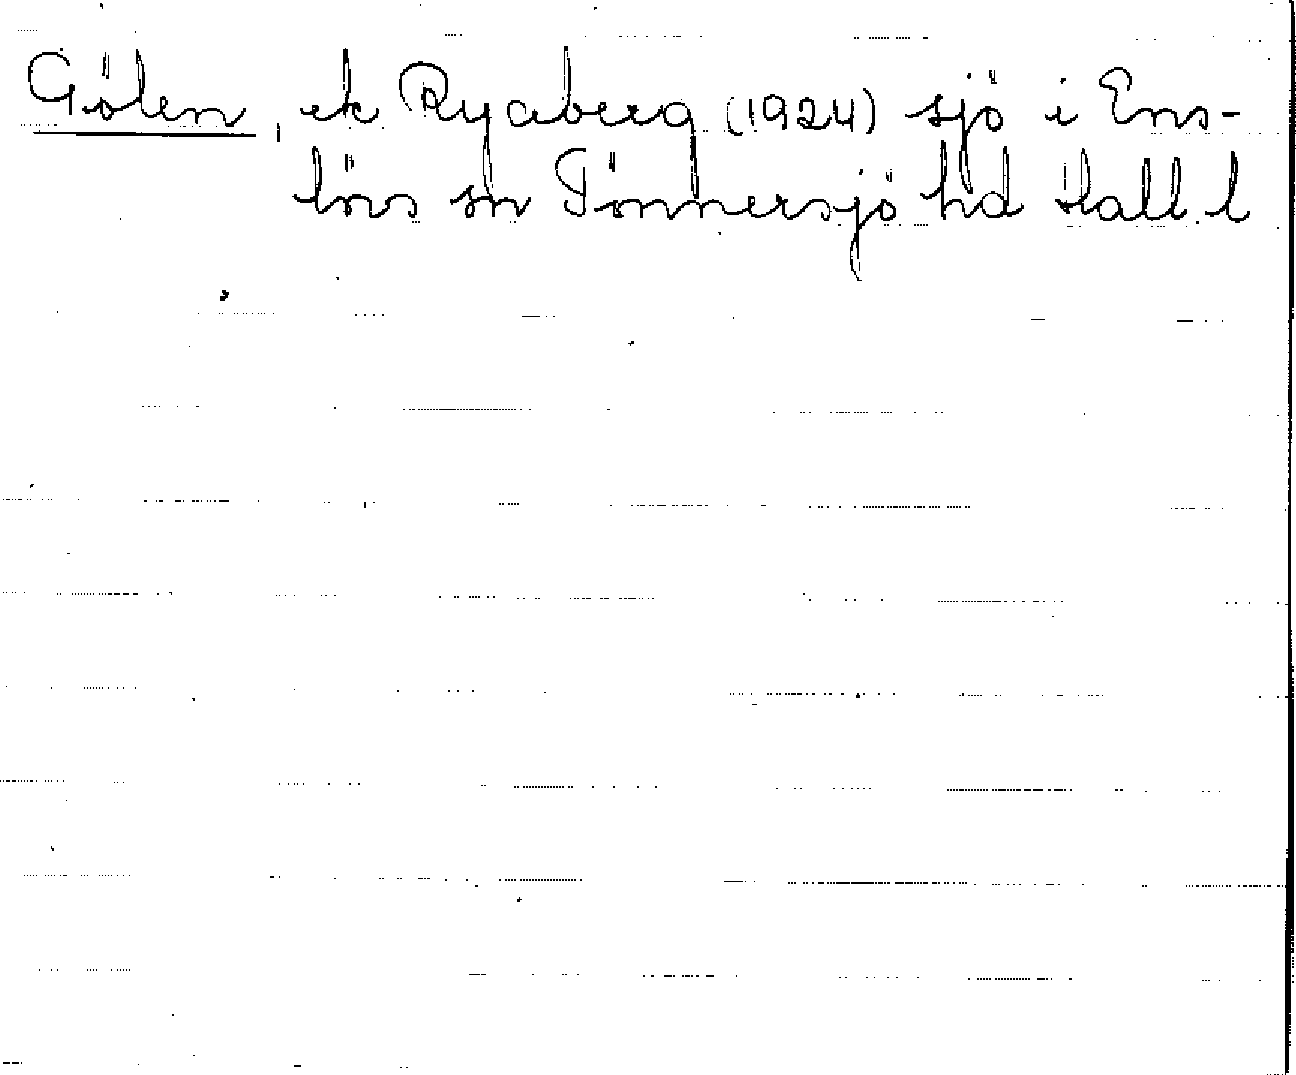 Gölen, ek Ryaberg (1924) sjö i Ens-
lövs sn Tönnersjö hd Hall. l